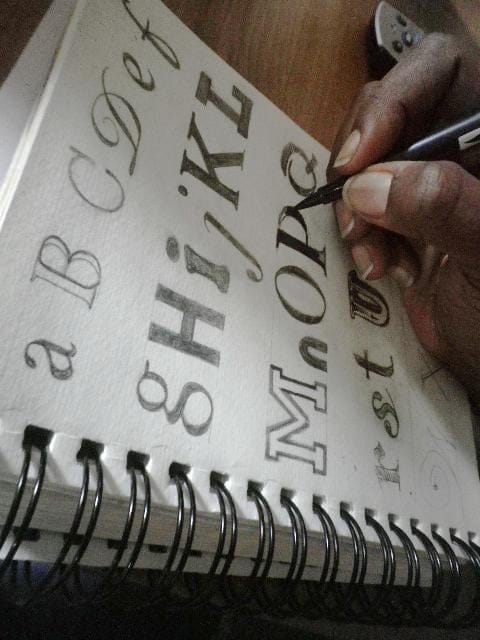 a B C D e f
g H i j K L
M n O P Q
r s t U